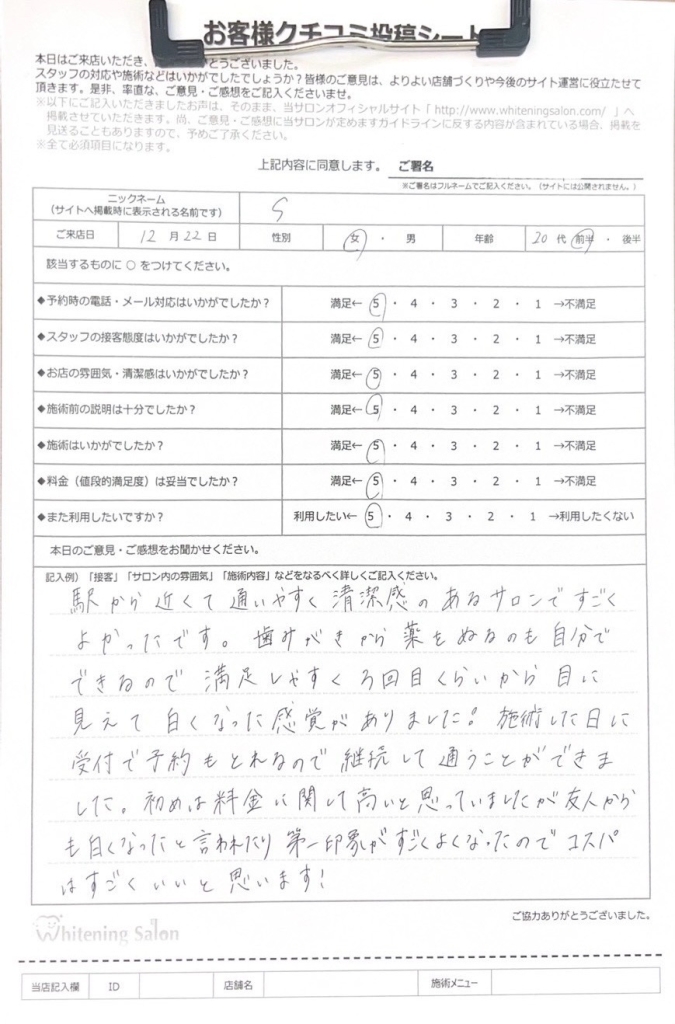 お客様クチコミ投稿シート
本日はご来店いただき、とうございました。
スタッフの対応や施術などはいかがでしたでしょうか？皆様のご意見は、よりよい店舗づくりや今後のサイト運営に役立たせて
頂きます。是非、率直な、ご意見・ご感想をご記入くださいませ。
※以下にご記入いただきましたお声は、そのまま、当サロンオフィシャルサイト「 http://www.whiteningsalon.com/ 」へ
掲載させていただきます。尚、ご意見・ご感想に当サロンが定めますガイドラインに反する内容が含まれている場合、掲載を
見送ることもありますので、予めご了承ください。
※全て必須項目になります。
上記内容に同意します。 ご署名
※ご署名はフルネームでご記入ください。（サイトには公開されません。）
ニックネーム
（サイトへ掲載時に表示される名前です） S
ご来店日 12 月 22 日 性別 女 ・ 男 年齢 20 代 前半 ・ 後半
該当するものに ○ をつけてください。
◆予約時の電話・メール対応はいかがでしたか？ 満足← 5 ・ 4 ・ 3 ・ 2 ・ 1 →不満足
◆スタッフの接客態度はいかがでしたか？ 満足← 5 ・ 4 ・ 3 ・ 2 ・ 1 →不満足
◆お店の雰囲気・清潔感はいかがでしたか？ 満足← 5 ・ 4 ・ 3 ・ 2 ・ 1 →不満足
◆施術前の説明は十分でしたか？ 満足← 5 ・ 4 ・ 3 ・ 2 ・ 1 →不満足
◆施術はいかがでしたか？ 満足← 5 ・ 4 ・ 3 ・ 2 ・ 1 →不満足
◆料金（値段的満足度）は妥当でしたか？ 満足← 5 ・ 4 ・ 3 ・ 2 ・ 1 →不満足
◆また利用したいですか？ 利用したい← 5 ・ 4 ・ 3 ・ 2 ・ 1 →利用したくない
本日のご意見・ご感想をお聞かせください。
記入例）「接客」「サロン内の雰囲気」「施術内容」などをなるべく詳しくご記入ください。
駅から近くて通いやすく清潔感のあるサロンですごく
よかったです。歯みがきから薬をぬるのも自分で
できるので満足しやすく3回目くらいから目に
見えて白くなった感覚がありました！施術した日に
受付で予約もとれるので継続して通うことができま
した。初めは料金に関して高いと思っていましたが友人から
も白くなったと言われたり第一印象がすごくよくなったのでコスパ
はすごくいいと思います！
ご協力ありがとうございました。
Whitening Salon
当店記入欄 ID 店舗名 施術メニュー